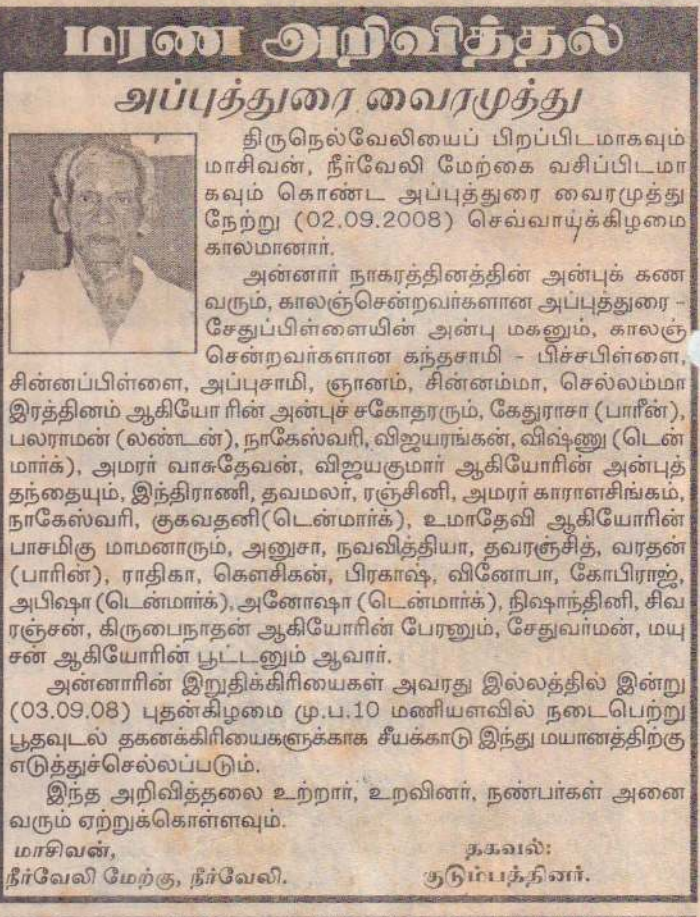 மரண அறிவித்தல்
அப்புத்துரை வைரமுத்து
திருநெல்வேலியைப் பிறப்பிடமாகவும்
மாசிவன், நீர்வேலி மேற்கை வசிப்பிடமா
கவும் கொண்ட அப்புத்துரை வைரமுத்து
நேற்று (02.09.2008) செவ்வாய்க்கிழமை
காலமானார்.
அன்னார் நாகரத்தினத்தின் அன்புக் கண
வரும், காலஞ்சென்றவர்களான அப்புத்துரை -
சேதுப்பிள்ளையின் அன்பு மகனும், காலஞ்
சென்றவர்களான கந்தசாமி - பிச்சபிள்ளை,
சின்னப்பிள்ளை, அப்புசாமி, ஞானம், சின்னம்மா, செல்லம்மா
இரத்தினம் ஆகியோ ரின் அன்புச் சகோதரரும், கேதுராசா (பாரீன்),
பலராமன் (லண்டன்), நாகேஸ்வரி, விஜயரங்கன், விஷ்ணு (டென்
மார்க்), அமரர் வாசுதேவன், விஜயகுமார் ஆகியோரின் அன்புத்
தந்தையும், இந்திராணி, தவமலர், ரஞ்சினி, அமரர் காராளசிங்கம்,
நாகேஸ்வரி, குகவதனி(டென்மார்க்), உமாதேவி ஆகியோரின்
பாசமிகு மாமனாரும், அனுசா, நவவித்தியா, தவரஞ்சித், வரதன்
(பாரின்), ராதிகா, கௌசிகன், பிரகாஷ், வினோபா, கோபிராஜ்,
அபிஷா (டென்மார்க்),அனோஷா (டென்மார்க்), நிஷாந்தினி, சிவ
ரஞ்சன், கிருபைநாதன் ஆகியோரின் பேரனும், சேதுவர்மன், மயு
சன் ஆகியோரின் பூட்டனும் ஆவார்.
அன்னாரின் இறுதிக்கிரியைகள் அவரது இல்லத்தில் இன்று
(03.09.08) புதன்கிழமை மு.ப.10 மணியளவில் நடைபெற்று
பூதவுடல் தகனக்கிரியைகளுக்காக சீயக்காடு இந்து மயானத்திற்கு
எடுத்துச்செல்லப்படும்.
இந்த அறிவித்தலை உற்றார், உறவினர், நண்பர்கள் அனை
வரும் ஏற்றுக்கொள்ளவும்.
மாசிவன், தகவல்:
நீர்வேலி மேற்கு, நீர்வேலி. குடும்பத்தினர்.